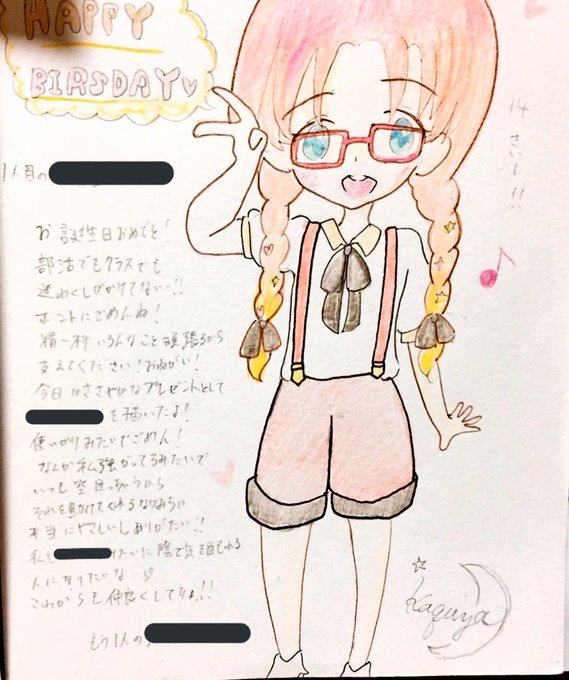 HAPPY
BIRSDAY♡
14
さい!!!
1人目の
お誕生日おめでと!
部活でもクラスでも
迷わくしかかけてない…!!
ホントにごめんね!
精一杯いろんなこと頑張るから
支えてください!おねがい!
今日はささやかなプレゼントとして
を描いたよ!
使いかりみたいでごめん!
なんか私強がってるみたいで
いつも空回っちゃうから
それを助けてくれる
本当にやさしいしありがたい!!
私も みたいに陰で気を配れる
人になりたいな
これからも仲良くしてね!!
もう1人の
Kaguya